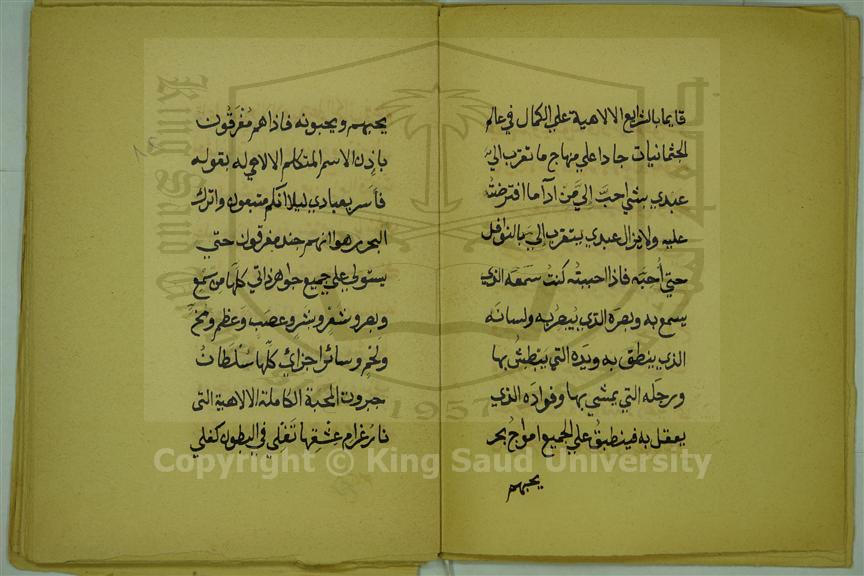 قايما بالشرايع الالاهية علي الكمال في عالم
الجثمانيات جادا علي منهاج ما تقرب الي
عبدي بشي احبَّ اِلَيَّ مَن ادآ ما افترضته
عليه ولا يزال عبدي يتقرب اليَّ بالنوافل
حتي اُحبَه فاذا احببته كنت سَمَعَه الذي
يسمع به وبصره الذي يبصر به ولسانَه
الذي ينطق به ويَدَه التي يبطش بها
ورجلَه التي يمشي بها وفوادَه الذي
يعقل به فينطبقُ علي الجميع امواجُ بحر
يحبهم
يحبهم ويحبونه فاذا هم مُغرَقُون
باِذن الاسم المتكلم الالاهي له بقوله
فاَسر بعبادي ليلا انّكم متبعون واترك
البحر رهوا انهم جند مغرقون حتي
يستولي علي جميع جواهر ذاتي كلّهَا من سَمْعٍ
وبصرٍ وشَعْرٍ وبَشَرٍ وعَصَبٍ وعَظمٍ ومُخّ
ولَحْمٍ وسائر اجزائي كلّها سُلْطَانُ
جبروت المحبة الكاملة الالاهية التي
نارُ غرام عِشقِها تَغْلي في البطون كغلي
King Saud University
1957
Copyright © King Saud University